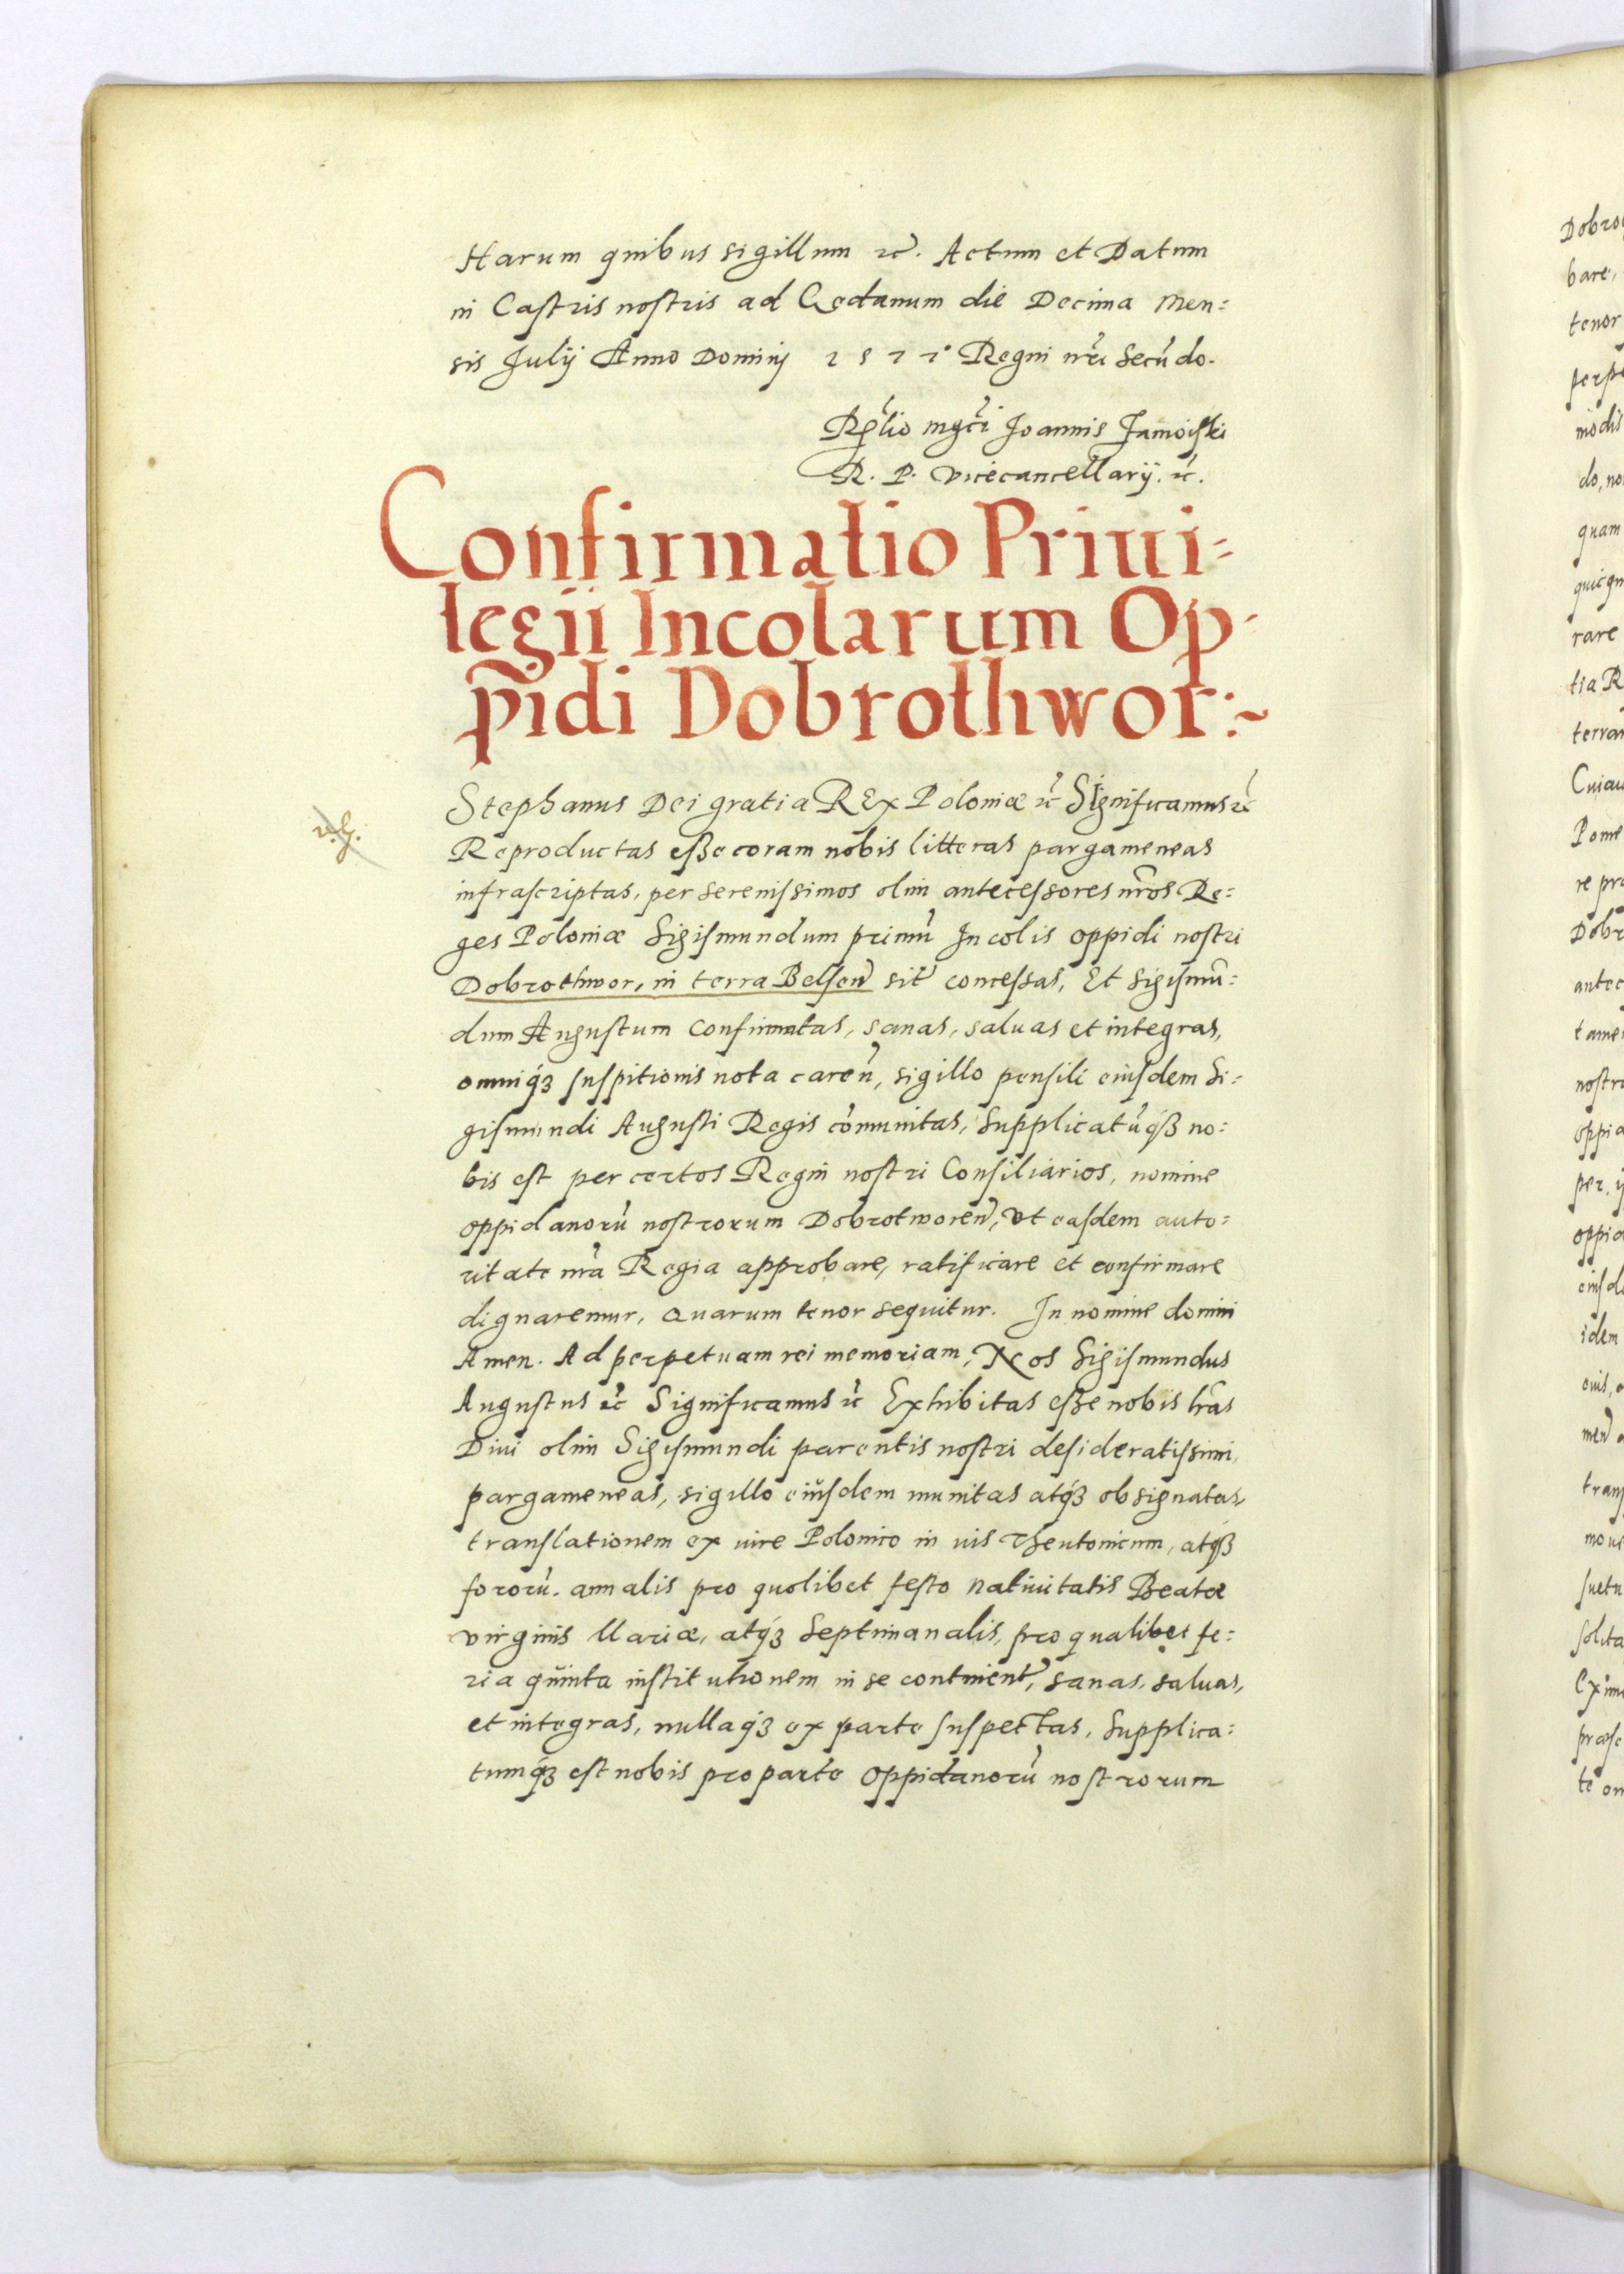 Harum quibus sigillum ꝛc̃. Actum et Datum
in Castris nostris ad Gedanum die Decima Men:
sis Julÿ Anno Dominj 1577° Regni nr̃i Secũdo.
Rel̃io mgc̃i Joannis Zamoiski
R. P. Vicecancellarÿ. ꝛc̃.
Confirmatio Priui:
legii Incolarum Op-
pidi Dobrothwor:~
Stephanus Dei gratia REx Poloniæ ꝛc̃ Significamus ꝛc̃
Reproductas eſße coram nobis litteras pargameneas
infraſcriptas, per Sereniſsimos olim anteceſsores nr̃os Re:
ges Poloniæ Sigiſmundum primũ Incolis oppidi noſtri
Dobrothwor, in terra Belſeñ sit̃ conceſsas, Et Sigiſmũ:
dum Auguſtum confirmatas, sanas, saluas et integras,
omniq́ꝫ ſuſpitionis nota careñ, sigillo penſili eiuſdem Si:
giſmundi Auguſti Regis cõmunitas, Supplicatũq́ꝫ no:
bis eſt per certos Regni noſtri Conſiliarios, nomine
oppidanorũ noſtrorum Dobrotworeñ, Vt eaſdem auto:
ritate nr̃a Regia approbare, ratificare et confirmare
dignaremur, Quarum tenor sequitur. In nomine domini
Amen. Ad perpetuam rei memoriam, Nos Sigiſmundus
Auguſtus ꝛc̃ Significamus ꝛc̃ Exhibitas eſße nobis lr̃as
Diui olim Sigiſmundi parentis noſtri deſideratiſsimi,
pargameneas, sigillo eiuſdem munitas atq́ꝫ obſignatas,
tranſlationem ex iure Polonico in ius Theutonicum, atq́ꝫ
fororũ. annalis pro quolibet feſto Natiuitatis Beatæ
virginis Mariæ, atq́ꝫ Septimanalis, pro qualibet fe:
ria quinta inſtitutionem in se continent̃, sanas, saluas,
et integras, nullaq́ꝫ ex parte ſuſpectas, Supplica:
tumq́ꝫ eſt nobis pro parte Oppidanorũ noſtrorum